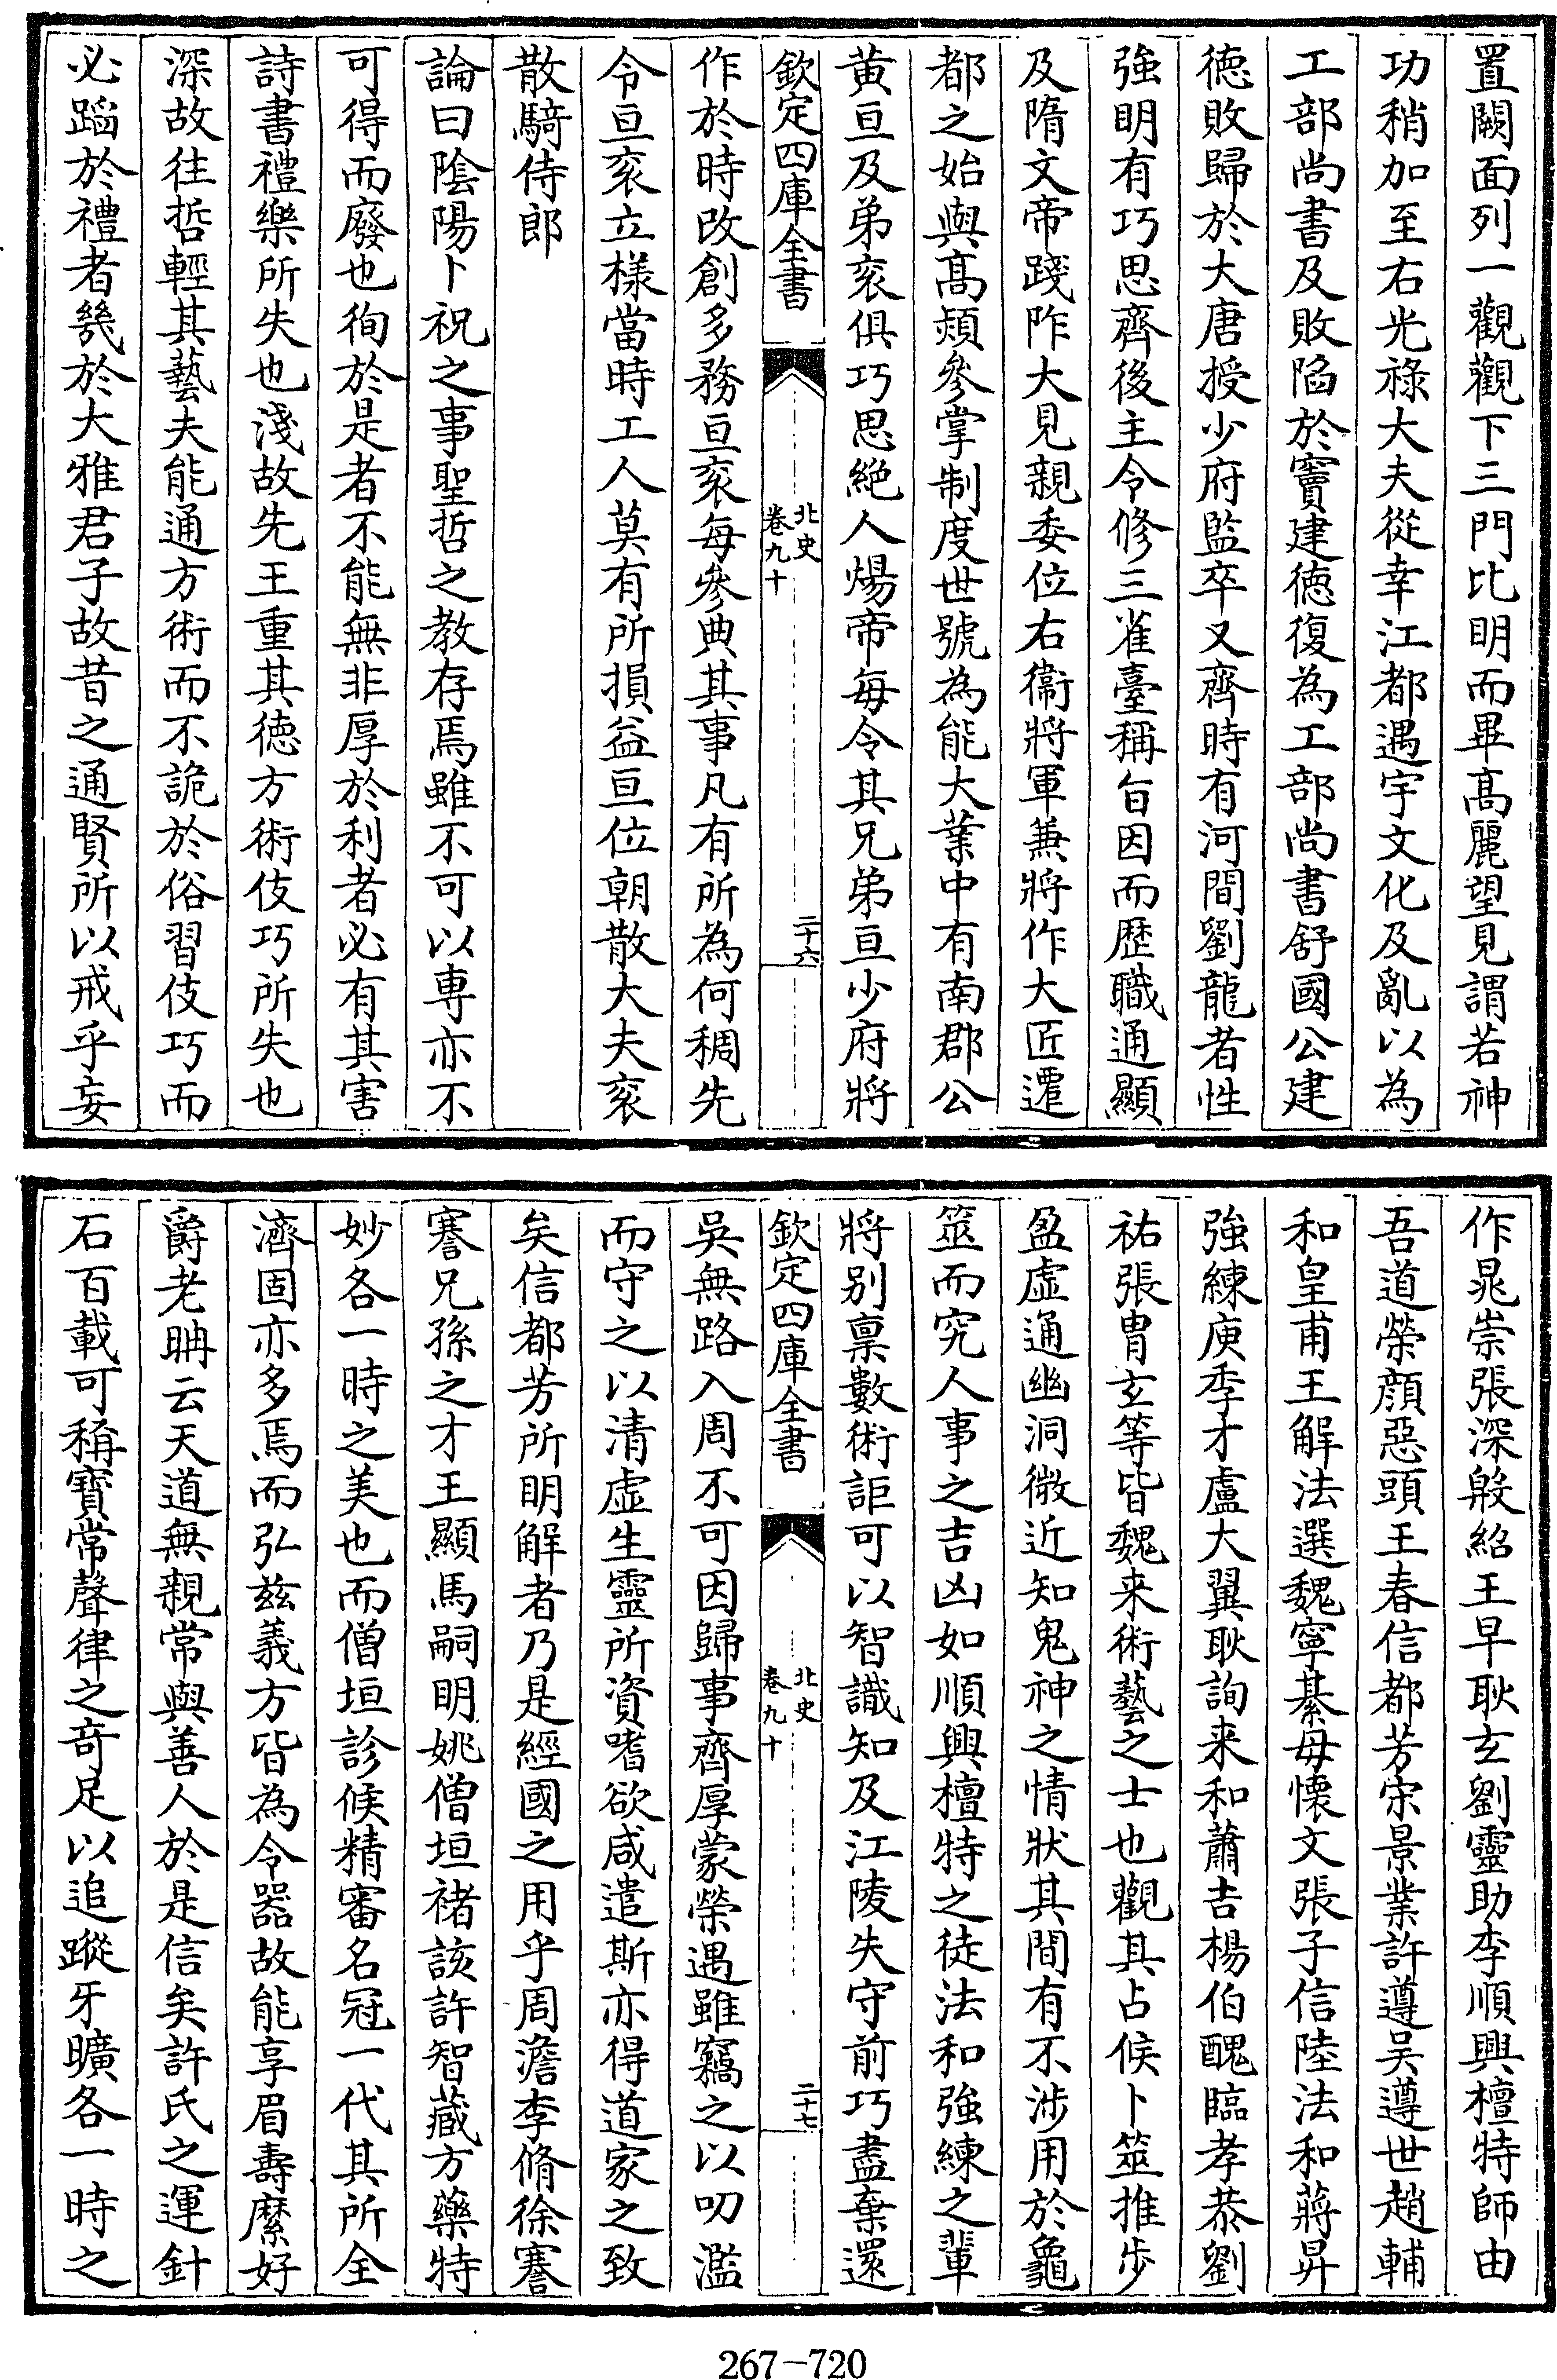 置闕面列一觀觀下三門比明而畢髙麗望見謂若神
功稍加至右光祿大夫從幸江都遇宇文化及亂以為
工部尚書及敗陷於竇建徳復為工部尚書舒國公建
徳敗歸於大唐授少府監卒又齊時有河間劉龍者性
強明有巧思齊後主令修三雀臺稱㫖因而歴職通顯
及隋文帝踐阼大見親委位右衞將軍兼將作大匠遷
都之始與髙熲參掌制度世號為能大業中有南郡公
黄亘及弟衮俱巧思絶人煬帝每令其兄弟亘少府將
欽定四庫全書
北史
卷九十
二十六
作於時改創多務亘衮每參典其事凡有所為何稠先
令亘衮立樣當時工人莫有所損益亘位朝散大夫衮
散騎侍郎
論曰陰陽卜祝之事聖哲之教存焉雖不可以専亦不
可得而廢也徇於是者不能無非厚於利者必有其害
詩書禮樂所失也淺故先王重其徳方術伎巧所失也
深故往哲輕其藝夫能通方術而不詭於俗習伎巧而
必蹈於禮者幾於大雅君子故昔之通賢所以戒乎妄
作晁崇張深殷紹王早耿玄劉靈助李順興檀特師由
吾道榮顔惡頭王春信都芳宋景業許遵吳遵世趙輔
和皇甫王解法選魏寧綦母懐文張子信陸法和蔣昇
強練庾季才盧大翼耿詢来和蕭吉楊伯醜臨孝恭劉
祐張胄玄等皆魏来術藝之士也觀其占候卜筮推步
盈虚通幽洞微近知鬼神之情狀其間有不涉用於龜
筮而究人事之吉凶如順興檀特之徒法和強練之輩
將別稟數術詎可以智識知及江陵失守前巧盡棄還
欽定四庫全書
北史
卷九十
二十七
吳無路入周不可因歸事齊厚蒙榮遇雖竊之以叨濫
而守之以清虚生靈所資嗜欲咸遣斯亦得道家之致
矣信都芳所明解者乃是經國之用乎周澹李脩徐謇
謇兄孫之才王顯馬嗣明姚僧垣褚該許智藏方藥特
妙各一時之美也而僧垣診候精審名冠一代其所全
濟固亦多焉而弘兹義方皆為令器故能享眉壽縻好
爵老聃云天道無親常與善人於是信矣許氏之運針
石百載可稱寳常聲律之奇足以追蹤牙曠各一時之
267-720